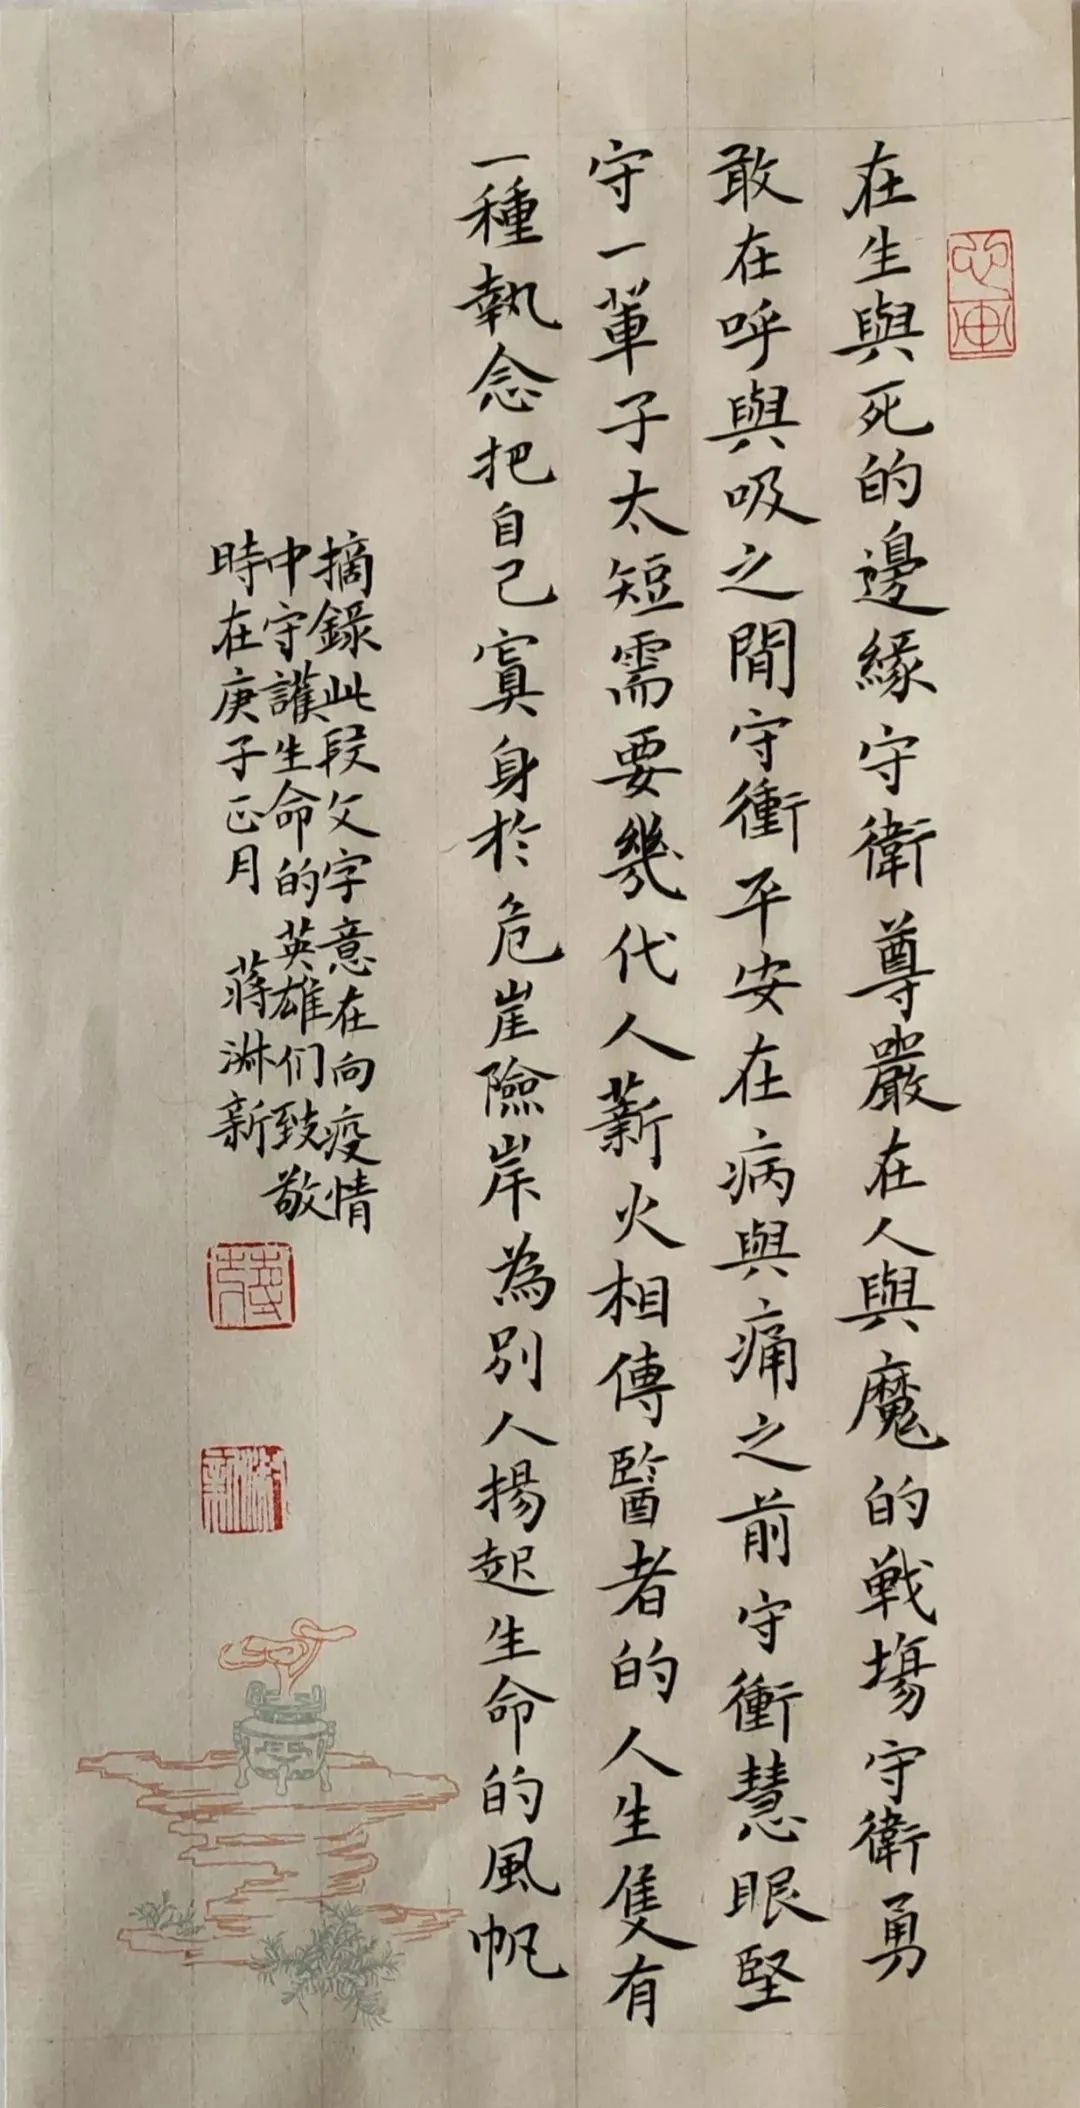 在生與死的邊緣守衛尊嚴在人與魔的戦塲守衛勇
敢在呼與吸之間守衝平安在病與痛之前守衝慧眼堅
守一輩子太短需要幾代人薪火相傳醫者的人生隻有
一種執念把自己寘身於危崖險岸為別人揚起生命的風帆
摘錄此段文字意在向疫情
中守護生命的英雄们致敬
時在庚子正月 蔣淋新